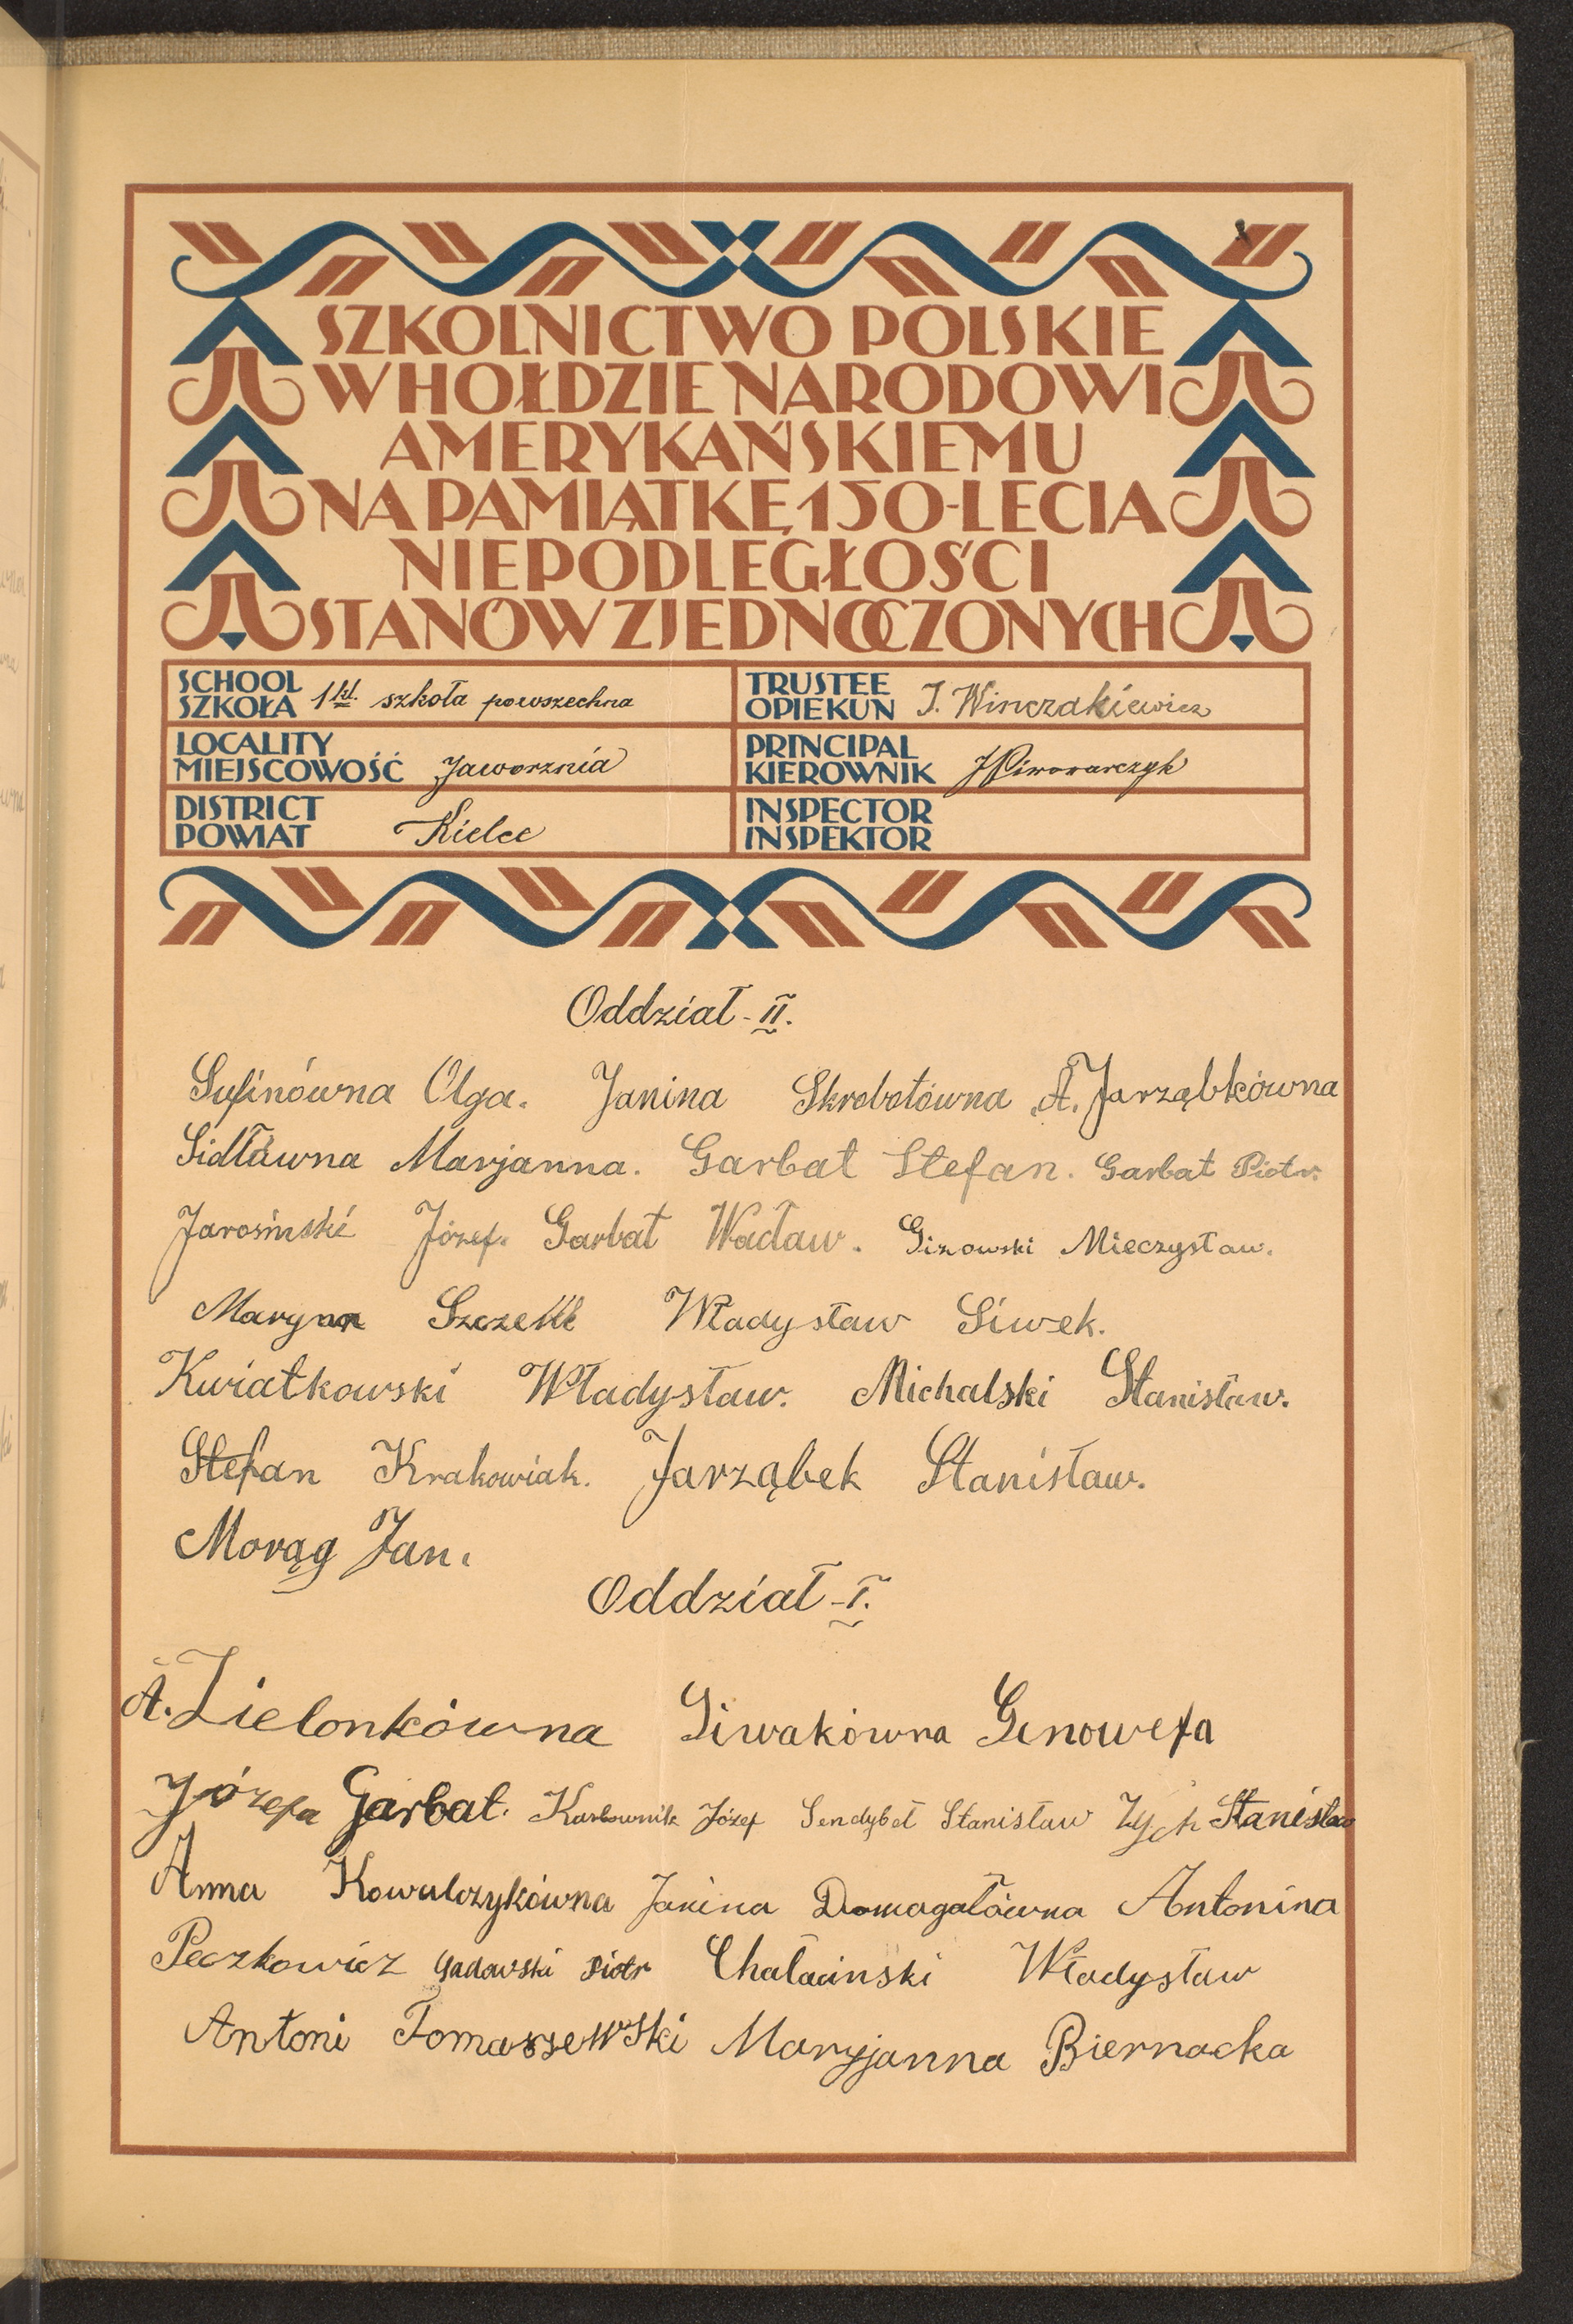 SZKOLNICTWO POLSKIE
W HOŁDZIE NARODOWI
AMERYKAŃSKIEMU
NA PAMIĄTKĘ 150-LECIA
NIEPODLEGŁOŚCI
STANÓW ZJEDNOCZONYCH
SCHOOL
SZKOŁA 1 kl. szkoła powszechna
TRUSTEE
OPIEKUN J. Winczakiewicz
LOCALITY
MIEJSCOWOŚĆ Jaworznia
PRINCIPAL
KIEROWNIK JPiwowarczyk
DISTRICT
POWIAT Kielce
INSPECTOR
INSPEKTOR
Oddział - II.
Olga. Janina Skrobotówna A. Jarząbkówna
Sidłówna Marjanna. Garbat Stefan. Garbat Piotr.
Jarosiński Józef. Garbat Wacław. Gizowski Mieczysław.
Władysław Siwek.
Kwiatkowski Władysław. Michalski Stanisław.
Stefan Krakowiak. Jarząbek Stanisław.
Morąg Jan.
Oddział - I.
A. Zielonkówna Siwakówna Genowefa
Józefa Garbat. Karbownik Józef Sendybeł Stanisław Zych Stanisław
Anna Kowalczykówna Janina Domagałówna Antonina
Peczkowicz Gadowski Piotr Chałaciński Władysław
Antoni Tomaszewski Maryjanna Biernacka